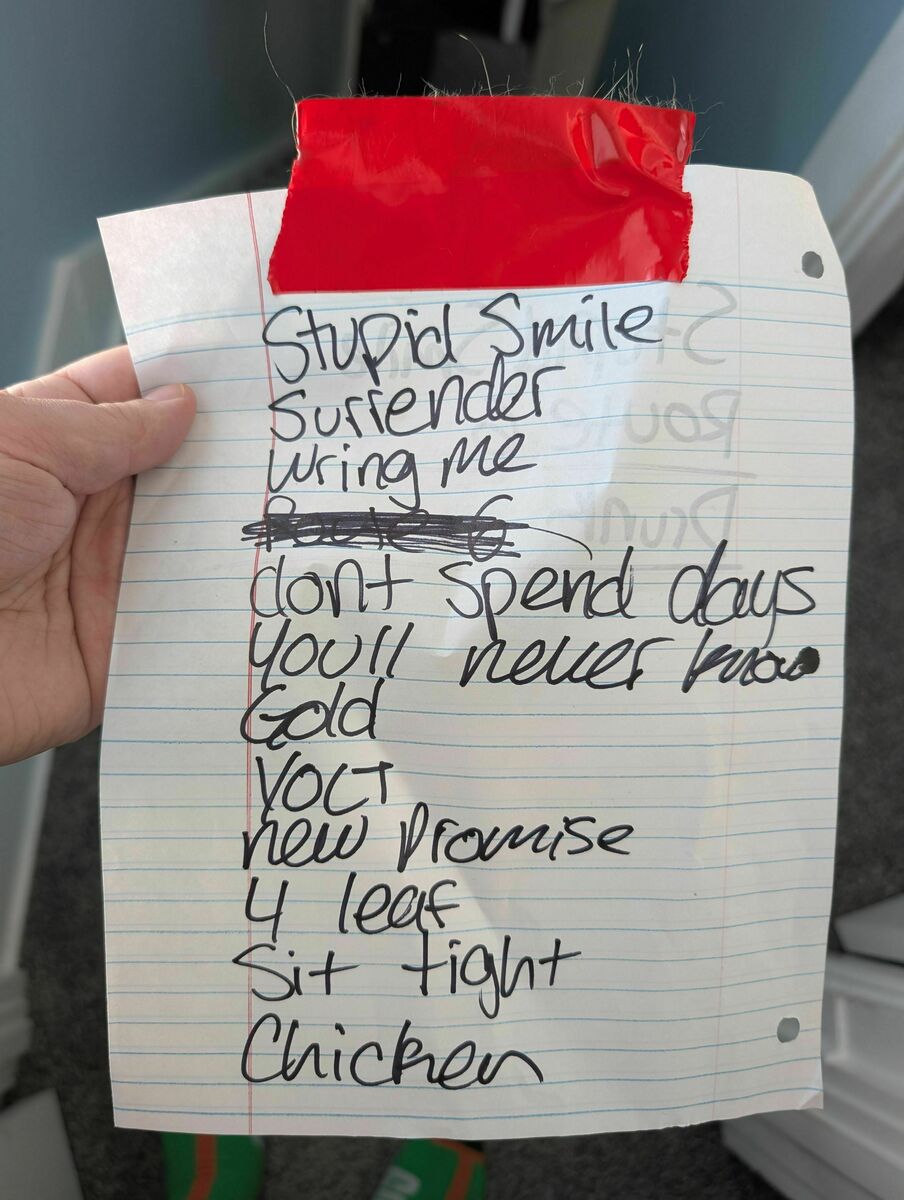 Stupid Smile
Surrender
Wring Me
Route 6
dont spend days
you'll never know
Gold
VOLT
new Promise
4 leaf
Sit tight
Chicken